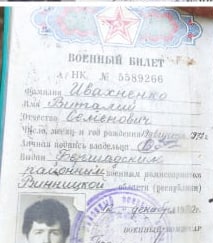 ВОЕННЫЙ БИЛЕТ
НК № 5589266
Фамилия Ивахненко
Имя Виталий
Отчество Семенович
Число, месяц и год рождения
Личная подпись владельца
Выдан Бершадским
районным военным комиссариатом
Винницкой области (республики)
декабря